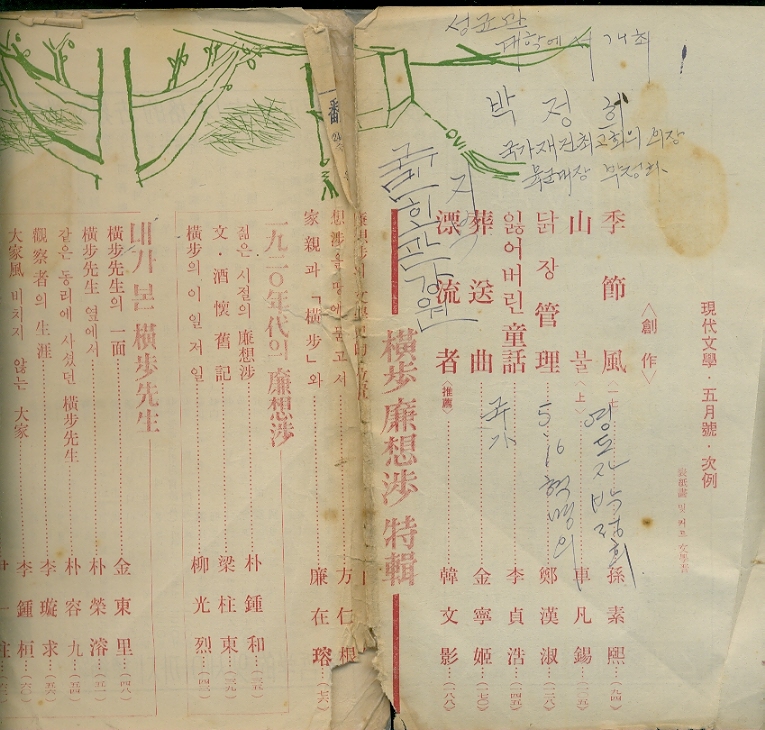 성균관
대학에서 개최
박정희
국가재건최고회의 의장
육군대장 박정희
現代文學・五月號・次例
表紙畵 및 커트
〈創作〉
季節風 孫素熙…(一九四)
山불〈上〉 車凡錫
닭장管理 鄭漢淑
잃어버린童話 李貞浩…(一四五)
葬送曲 金寧姬…(一七〇)
漂流者〈推薦〉 韓文影…(一八八)
영도자 박정희
5.16 혁명의
국가
橫步 廉想涉 特輯
想涉을 땅에 묻고서 方仁根
家親과「橫步」와 廉在瑢…(七六)
一九二〇年代의 廉想涉
젊은 시절의 廉想涉 朴鍾和…(三五)
文・酒 懷舊記 梁柱東…(三九)
橫步의 이일 저일 柳光烈…(四三)
내가 본 橫步先生
橫步先生의 一面 金東里…(四八)
橫步先生 옆에서 朴榮濬…(五一)
같은 동리에 사셨던 橫步先生 朴容九…(五四)
觀察者의 生涯 李璇求…(五六)
大家風 미치지 않는 大家 李鍾桓…(六〇)
一番